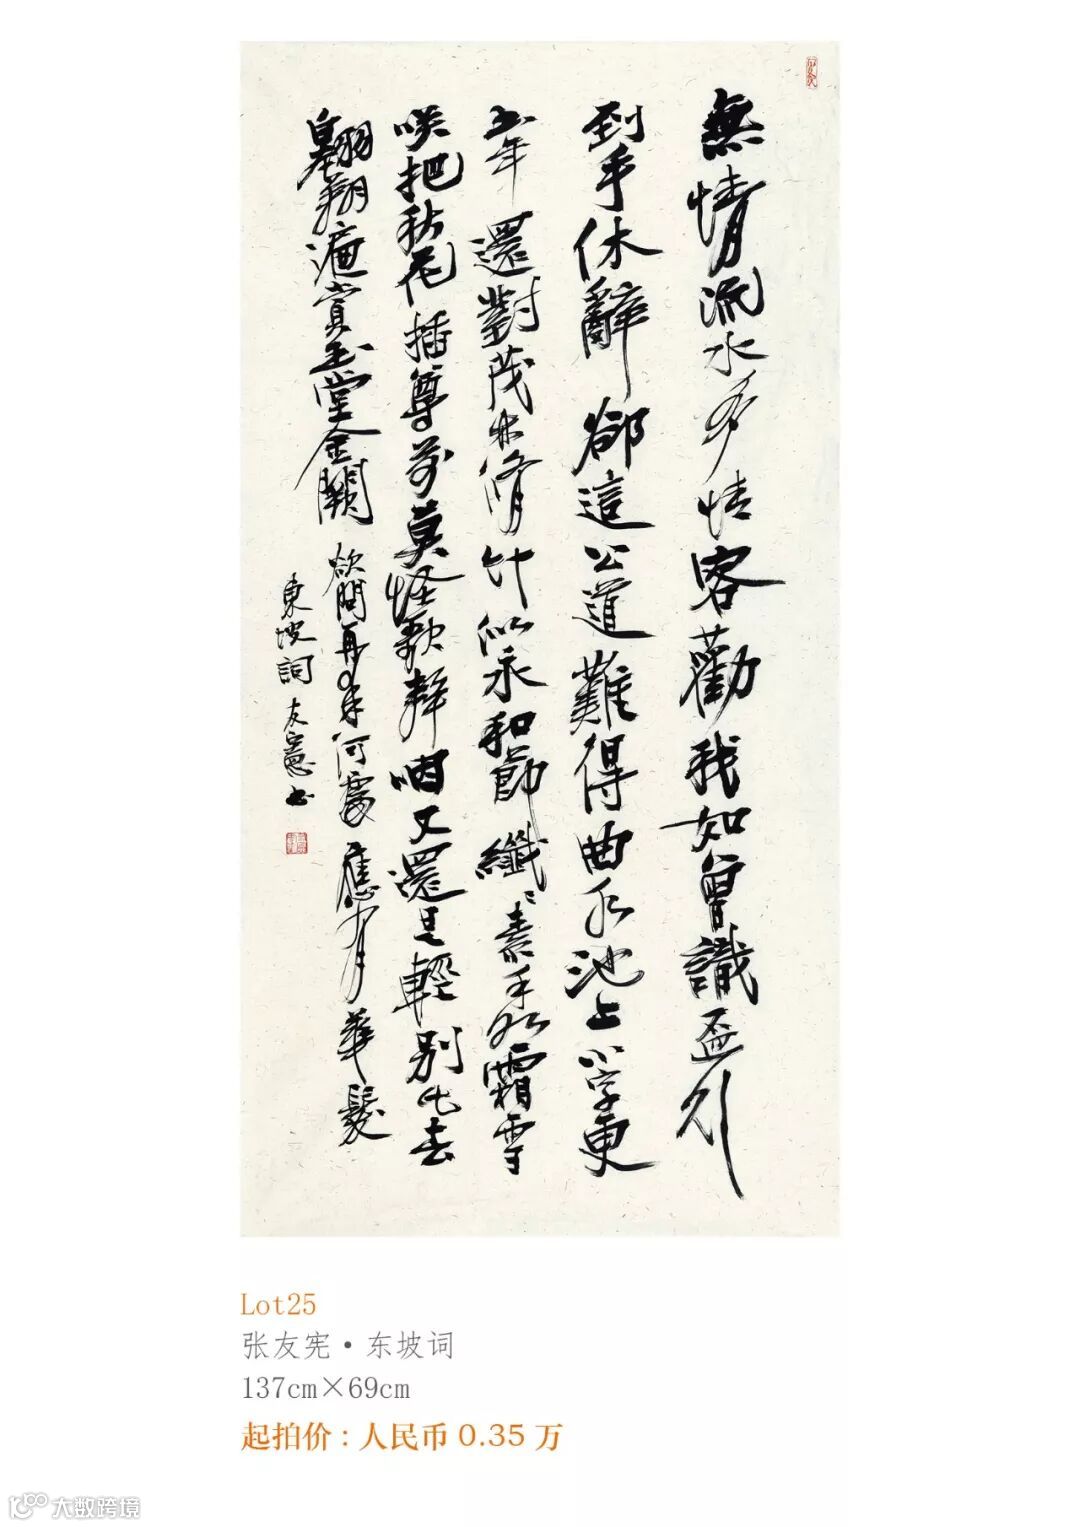 無情流水多情客勸我如曾識盃行
到手休辭郤這公道難得曲水池上小字更
書年還對茂林脩竹似永和節纖〻素手如霜雪
咲把秋花插尊前莫怪歌聲咽又還是輕別此去
翱翔遍賞玉堂金闕欲問再來何處應有華髮
東坡詞友憲書
Lot25
张友宪·东坡词
137cm×69cm
起拍价：人民币 0.35 万
大数跨境